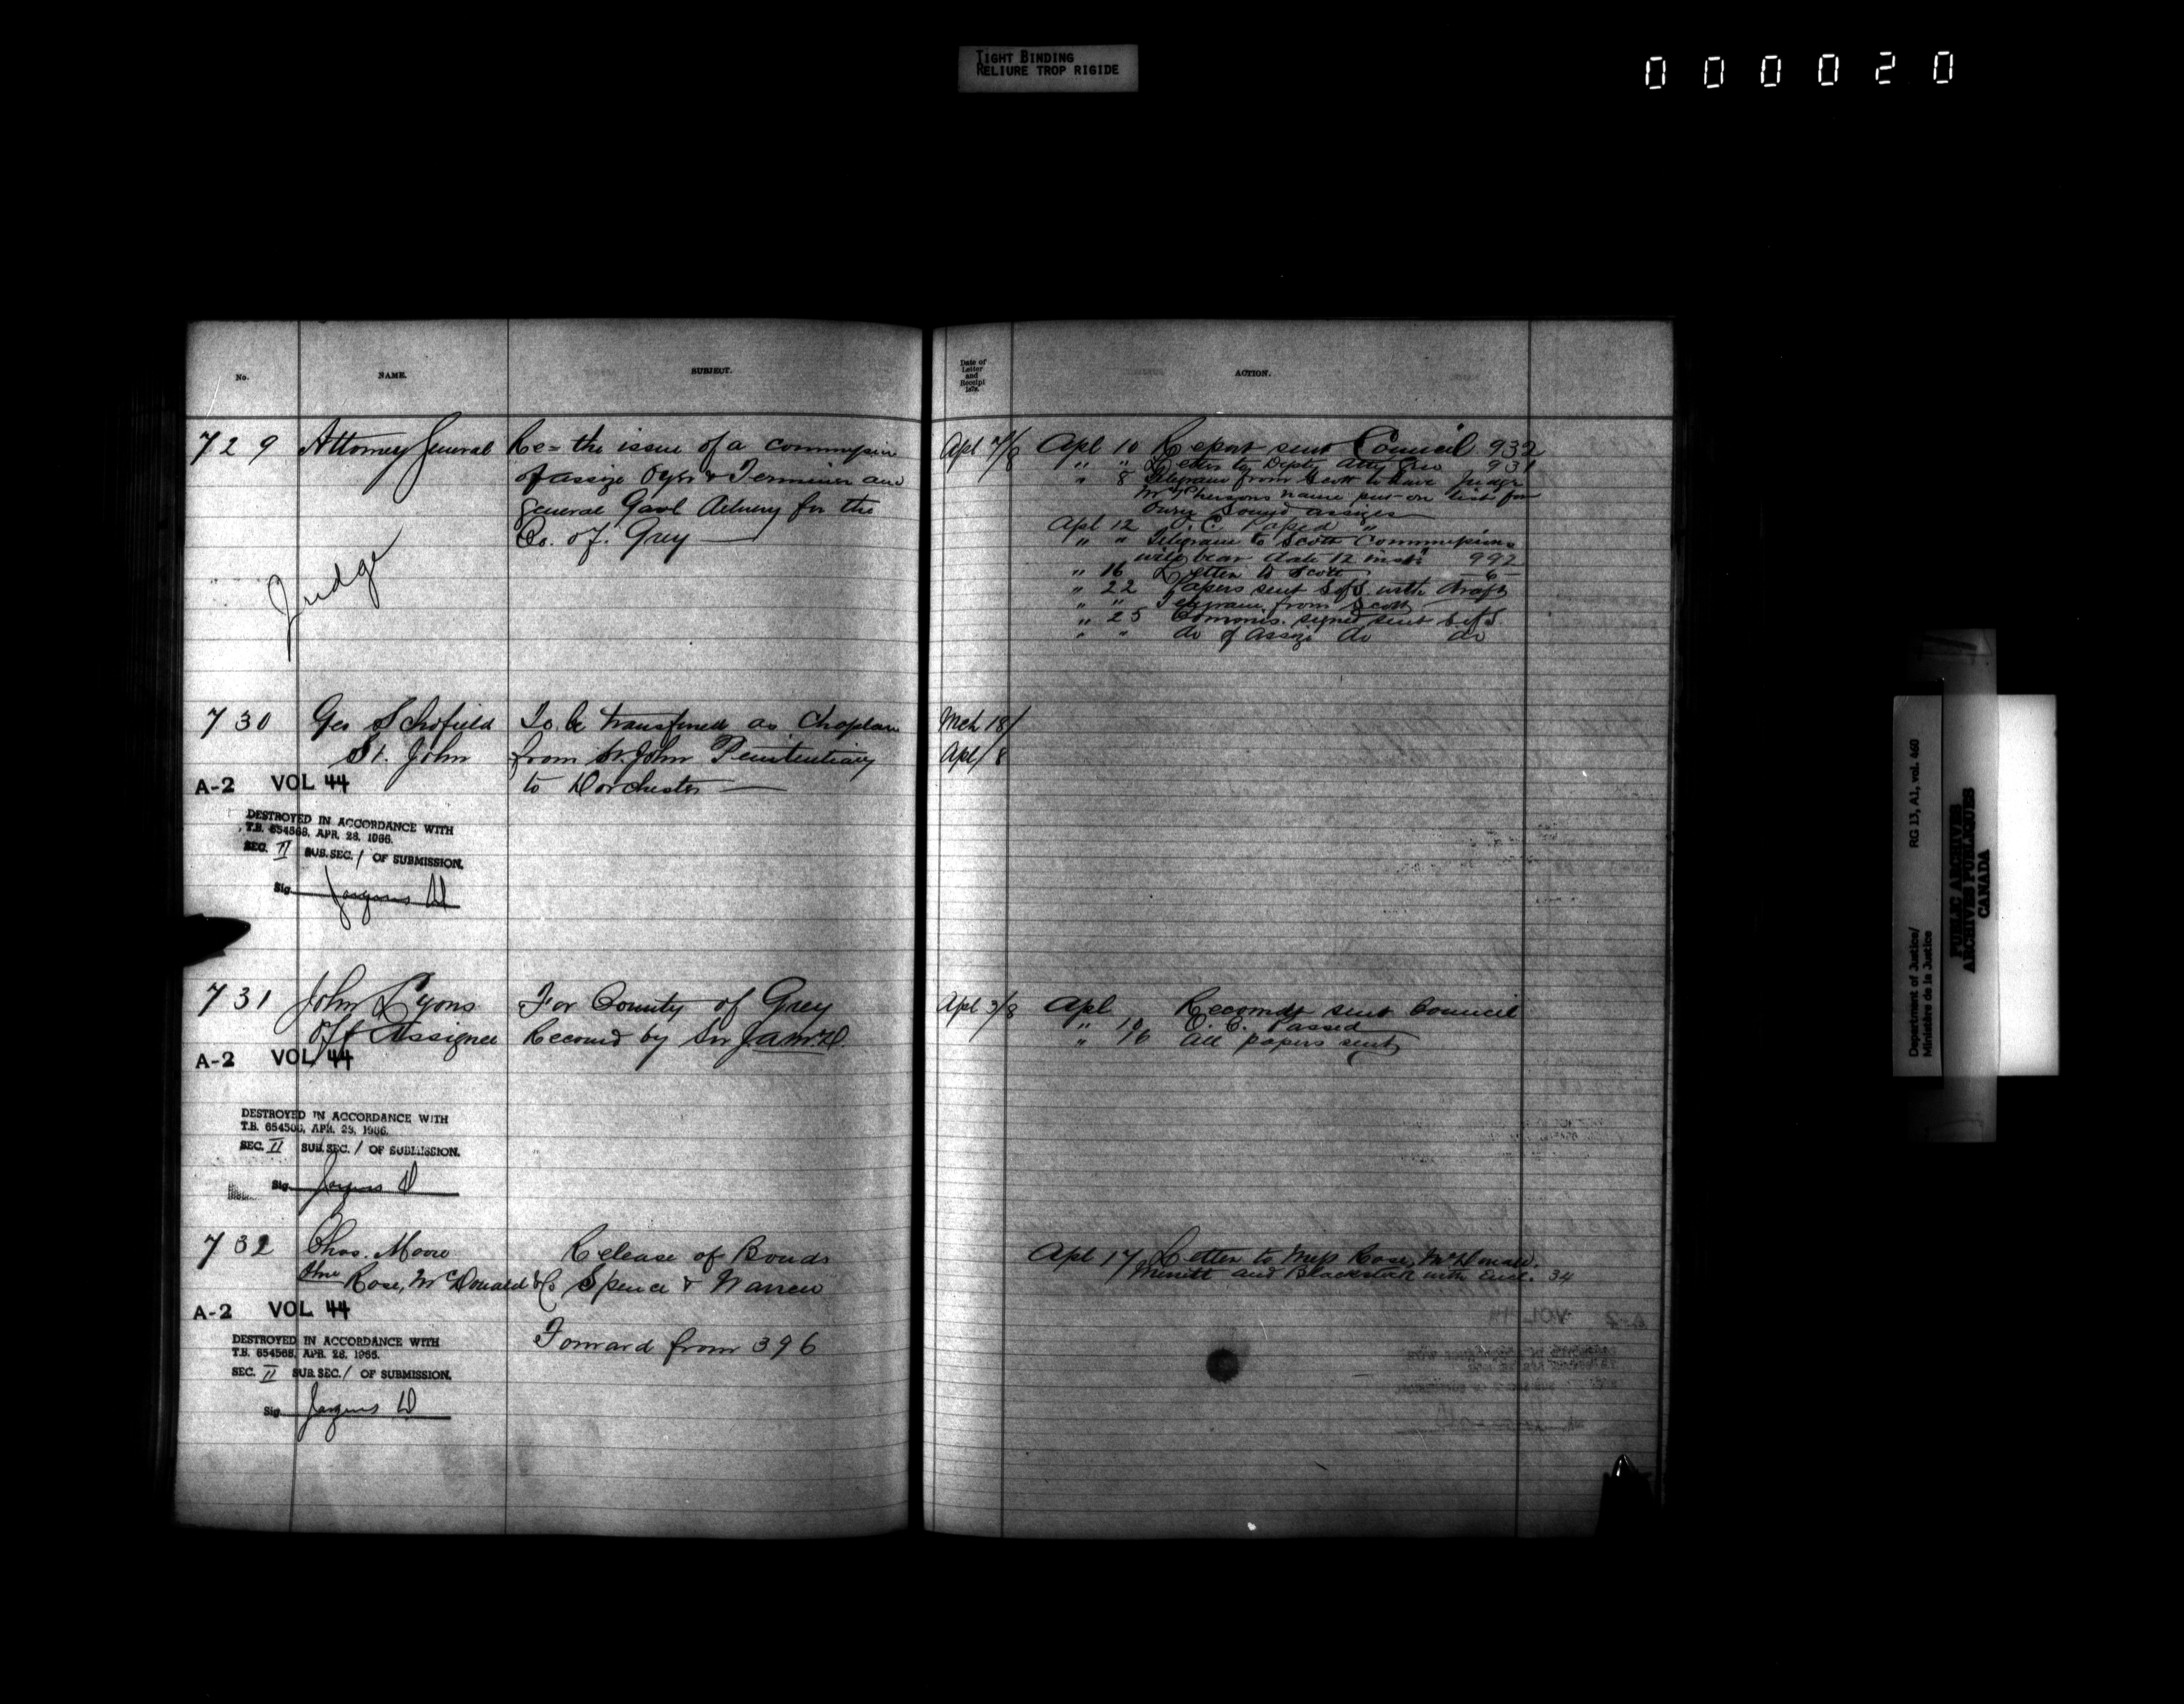 TIGHT BINDING
RELIURE TROP RIGIDE
000020
No. NAME. SUBJECT.
729 Attorney General Re= the issue of a commission
of assize Oyer & Terminer and
General Gaol Delivery for the
Co. of. Grey
Judge
730 Geo Schofield To be transferred as Chaplain
St. John from St. John Penitentiary
A-2 VOL 44 to Dorchester
DESTROYED IN ACCORDANCE WITH
T.B. 654568, APR. 28, 1966.
SEC. II SUB. SEC. 1 OF SUBMISSION.
Sig.
731 John Lyons For County of Grey
Off Assignee Recomd by Sir JAMcD.
A-2 VOL 44
DESTROYED IN ACCORDANCE WITH
T.B. 654568, APR. 28, 1966.
SEC. II SUB. SEC. 1 OF SUBMISSION.
Sig.
732 Chas. Moore Release of Bonds
Rose, McDonald & Co Spence & Warren
A-2 VOL 44
Forward from 396
DESTROYED IN ACCORDANCE WITH
T.B. 654568, APR. 28, 1966.
SEC. II SUB. SEC. 1 OF SUBMISSION.
Sig.
Date of
Letter
and
Receipt
187 .
ACTION.
Apl 7/8 Apl 10 Report sent Council 932
" " Letter to Depty Atty Gen 931
" 8 Telegram from Scott to have Judge
McPhersons name put on list for
Owen Sound assizes
Apl 12 O.C. Passed "
" " Telegram to Scott Commissions
will bear date 12 inst. 992
" 16 Letter to Scott 6
" 22 Papers sent S of S with draft
" " Telegram from Scott
" 25 Commis. signed sent S of S
" " do of assize do do
Mch 18/
Apl/8
Apl 3/8 Apl Recomdt sent Council
" 10 O.C. Passed
" 16 All papers sent
Apl 17 Letter to Mess Rose, McDonald.
Merritt and Blackstock with Encl. 34
Department of Justice/
Ministère de la Justice
RG 13, A1, vol. 460
PUBLIC ARCHIVES
ARCHIVES PUBLIQUES
CANADA